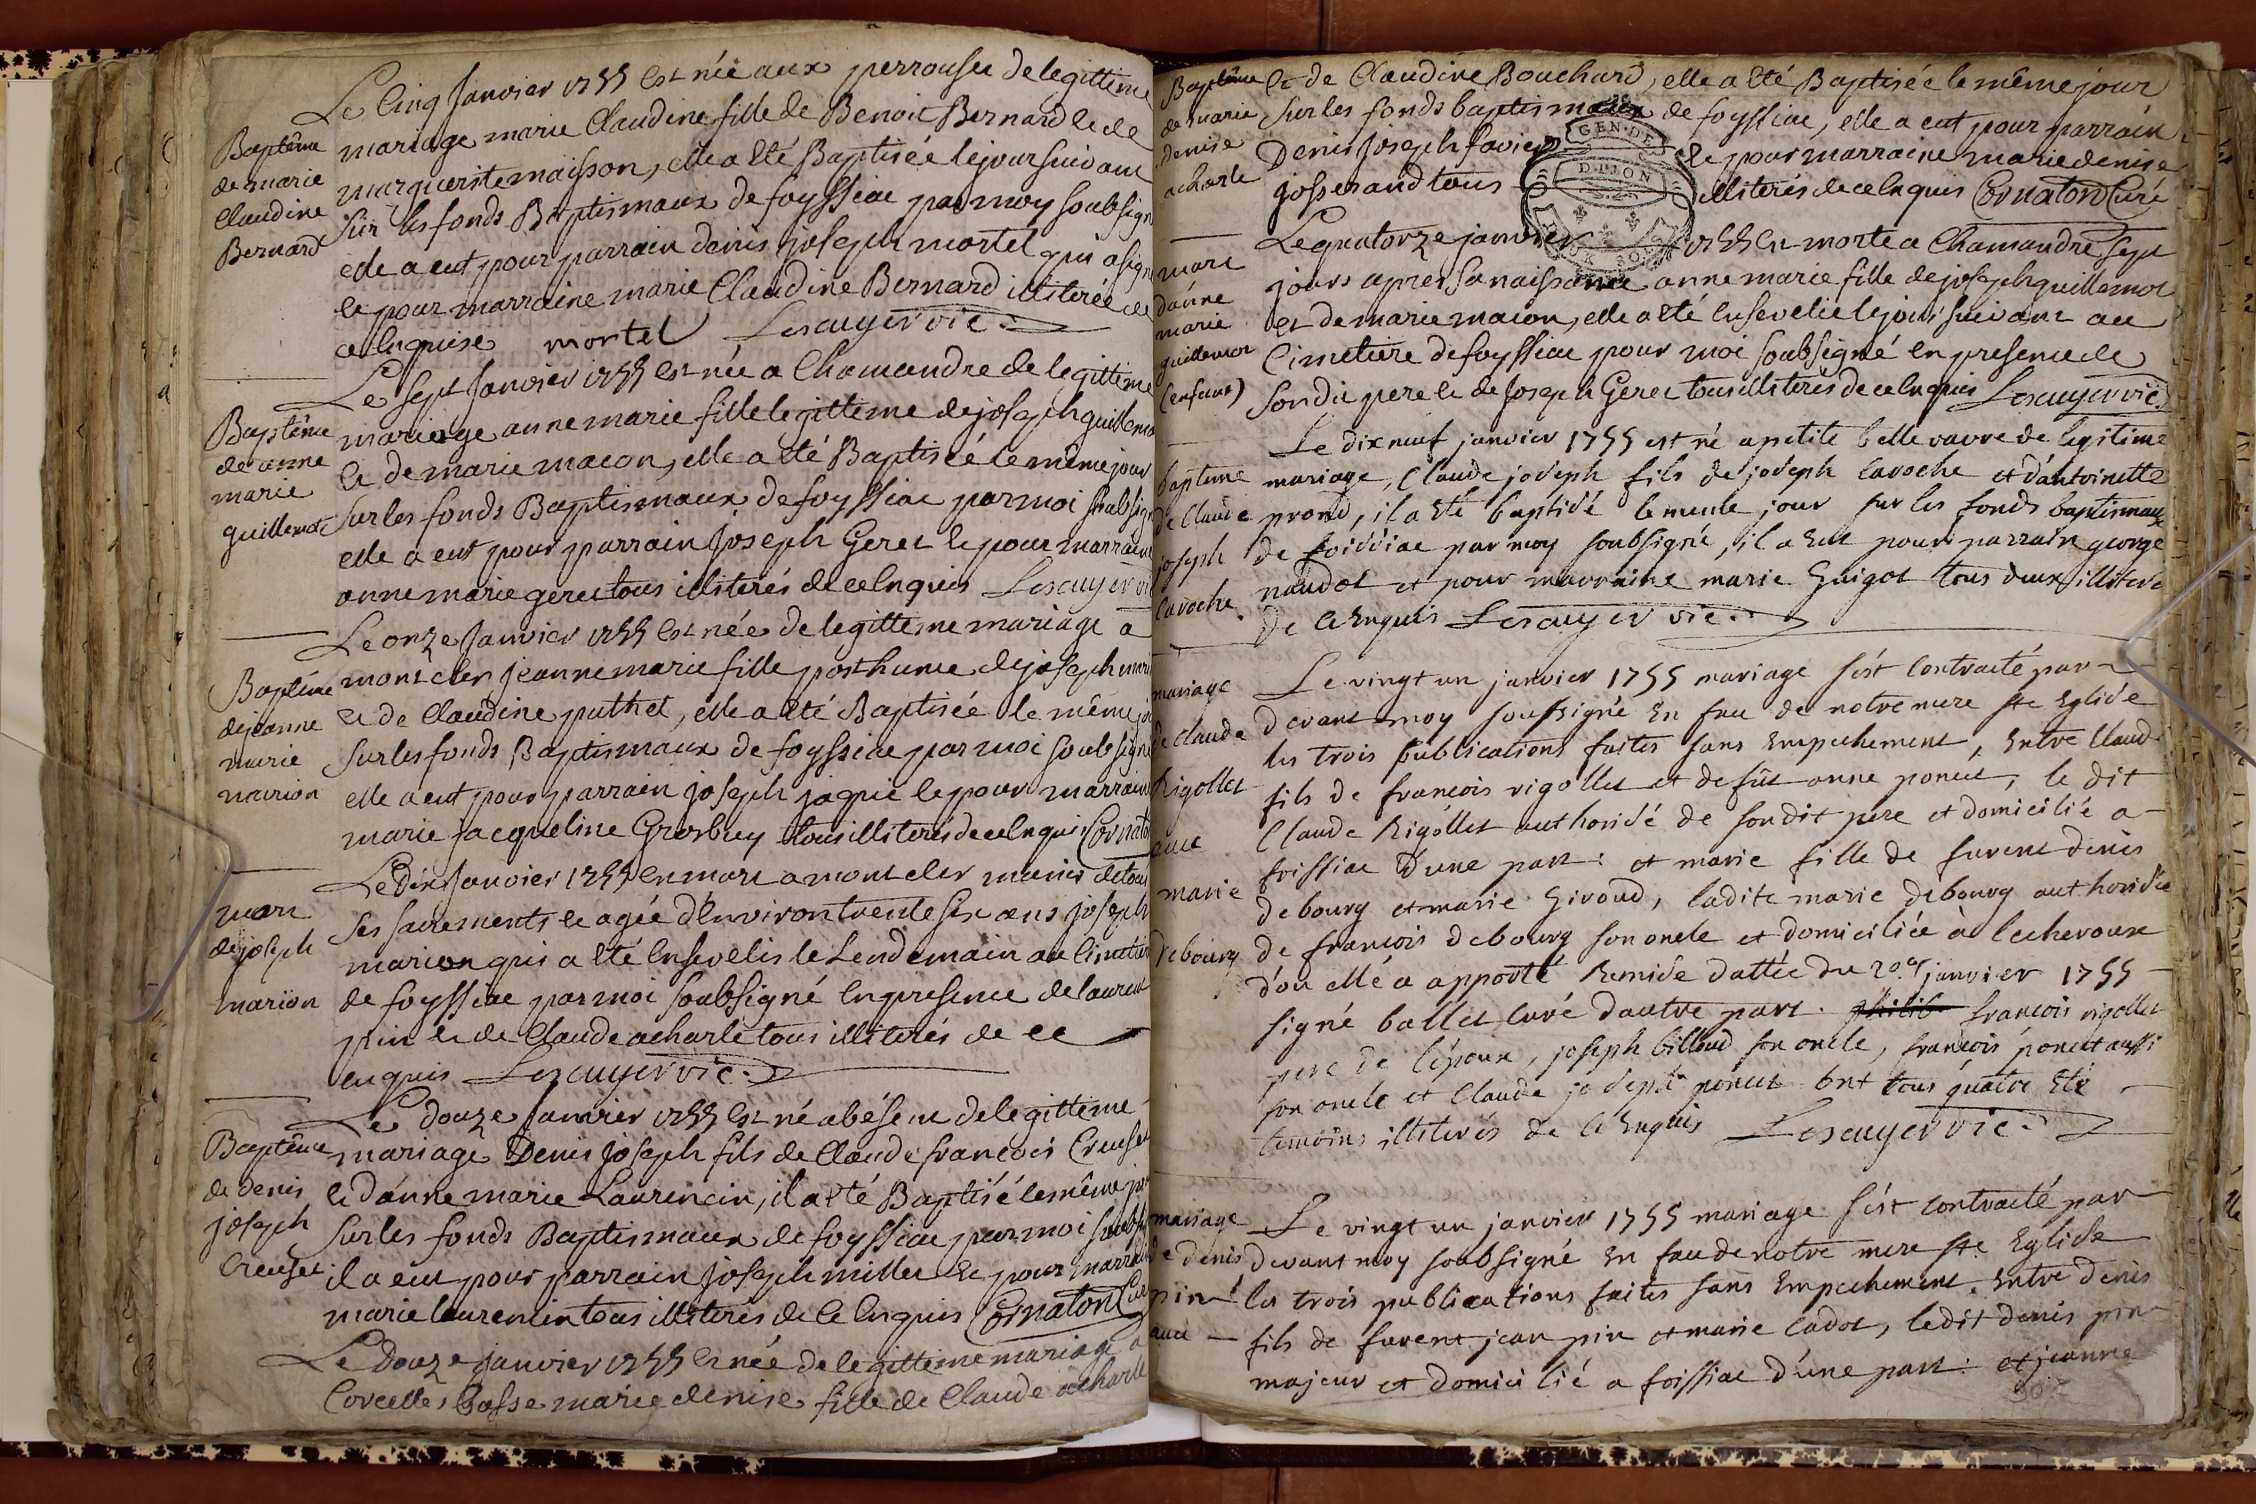 Le Cinq Janvier 1755 est née aux perrouses de legittime
Baptême
de marie
Claudine
Bernard
mariage marie Claudine fille de Benoit Bernard et de
marguerite maisson, elle a eté Baptisée le jour suivant
sur les fonds Baptismaux de foyssiac par moy soubsign
elle a eut pour parrain denis joseph mortel qui a sign
et pour marraine marie Claudine Bernard illiterée de
ce enquise mortel Lescuyer vic.
Le sept Janvier 1755 est née a Chamandre de legittime
Baptême
de anne
marie
guillemot
mariage anne marie fille legittime de joseph guillemo
et de marie macon, elle a eté Baptisée le même jour
sur les fonds Baptismaux de foyssiac par moi soubsign
elle a eut pour parrain Joseph Geret et pour marraine
anne marie geret tous illiterés de ce enquis Lescuyer vic
Le onze Janvier 1755 est née de legittime mariage a
Baptême
de jeanne
marie
marion
mont cler jeanne marie fille posthume de joseph mari
et de Claudine puthet, elle a eté Baptisée le même jo
sur les fonds Baptismaux de foyssiac par moi soubsigné
elle a eut pour parrain joseph jaquie et pour marraine
marie jacqueline Grosbuy tous illiterés de ce enquis Cornato
Le Dix Janvier 1755 est mort a mont cler munis de tous
mort
de joseph
marion
ses sacrements et agée d'environ trente six ans joseph
marion qui a eté ensevelis le Lendemain au Cimetier
de foyssiac par moi soubsigné en presence de laurent
pin et de Claude acharle tous illiterés de ce
enquis Lescuyer vic.
Le douze Janvier 1755 est né a béseut de legittime
Baptême
de denis
joseph
Creuset
mariage Denis Joseph fils de Claude francois Creuset
et d'anne marie Laurencin, il a eté Baptisé le même jo
sur les fonds Baptismaux de foyssiac par moi soubs
il a eut pour parrain Joseph millet et pour marrai
marie laurencin tous illiterés de ce enquis Cornaton Cur
Le Douze janvier 1755 est née de legittime mariage a
Corcelles basse marie denise fille de Claude acharle
Baptême
de marie
denise
acharle
et de Claudine Bouchard, elle a eté Baptisée le même jour
sur les fonds baptismaux de foyssiac, elle a eut pour parrain
Denis Joseph favier et pour marraine marie denise
josserand tous illiterés de ce enquis Cornaton Curé
GEN. DE
DIJON
Le quatorze janvier 1755 est morte a Chamandre sept
mort
d'anne
marie
guillemot
(enfant)
jours apres sa naissance anne marie fille de joseph guillemot
et de marie macon, elle a eté ensevelie le jour suivant au
Cimetiere de foyssiac pour moi soubsigné en presence de
son dit pere et de Joseph Geret tous illiterés de ce enquis Lescuyer vic.
Le dix neuf janvier 1755 est né a petite belle vavre de legitime
bapteme
de Claude
joseph
laroche
mariage, Claude joseph fils de joseph laroche et d'antoinette
prond, il a eté baptisé le meme jour sur les fonds baptismaux
de foissiac par moy soubsigné, il a eut pour parrain george
naudet et pour marraine marie Guigot tous deux illiteré
de ce enquis Lescuyer vic.
Le vingt un janvier 1755 mariage s'est contracté par
mariage
de claude
Rigollet
avec
marie
debourg
devant moy soussigné en face de notre mere ste Eglise
les trois publications faites sans empechement, entre Claud
fils de francois rigollet et de fut anne poncet, le dit
Claude Rigollet authorisé de son dit pere et domicilié a
foissiac d'une part: et marie fille de furent denis
debourg et marie Giroud, ladite marie debourg authorisée
de francois debourg son oncle et domiciliée à lecheroux
d'ou elle a apporté Remise dattée du 20e janvier 1755
signé ballet curé d'autre part. philib francois rigollet
pere de l'epoux, joseph billoud son oncle, francois poncet aussi
son oncle et Claude joseph poncet ont tous quatre été
temoins illiterés de ce enquis Lescuyer vic.
Le vingt un janvier 1755 mariage s'est contracté par
mariage
de denis
pin
avec
devant moy soubsigné en face de notre mere ste Eglise
les trois publications faites sans empechement, entre denis
fils de furent jean pin et marie cadot, ledit denis pin
majeur et domicilié a foissiac d'une part: et jeanne